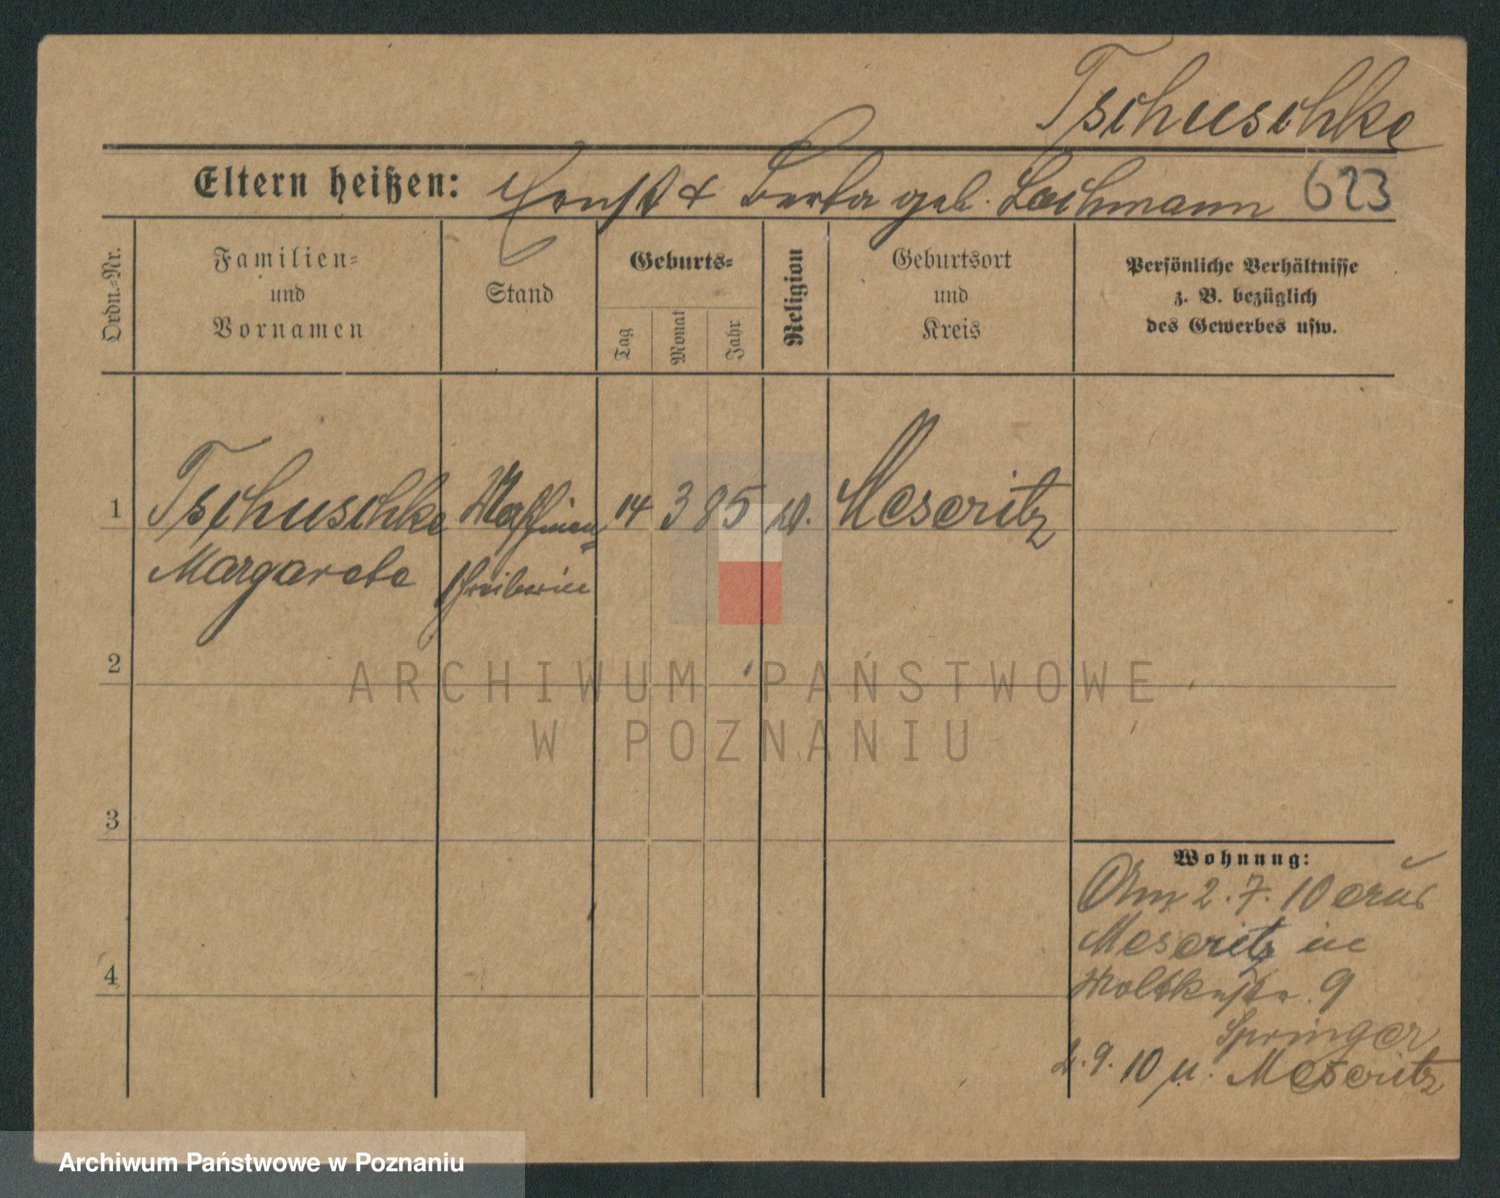 Tschuschke
Eltern heißen: Ernst & Berta geb. Lachmann 623
Ordn.-Nr.
Familien-
und
Vornamen
Stand
Geburts-
Tag
Monat
Jahr
Religion
Geburtsort
und
Kreis
Persönliche Verhältnisse
z. B. bezüglich
des Gewerbes usw.
1 Tschuschke Maschinen= 14 3 85 Meseritz
Margarete schreiberin
2
ARCHIWUM PAŃSTWOWE
W POZNANIU
3
Wohnung:
Am 2. 7. 10 aus
Meseritz in
4
Moltkestr. 9
Springer
2. 9. 10 n. Meseritz
Archiwum Państwowe w Poznaniu